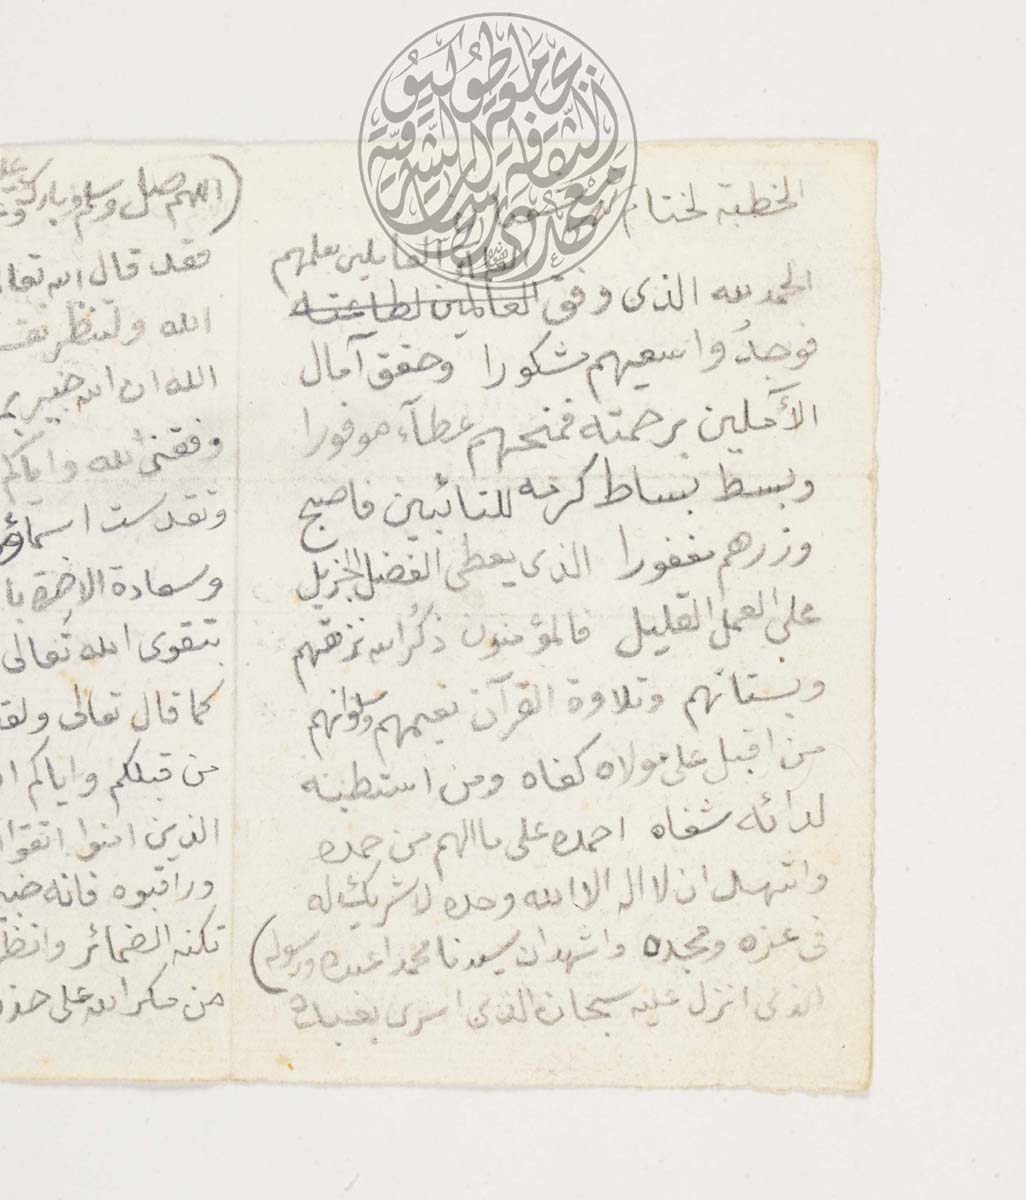 الخطبة لختام
العاملين بعلمهم
الحمد لله الذى وفق العالمين لطاعته
فوجدُوا سعيهم مشكورا وحقق آمال
الأملين برحمته فمنحهم عطآء موفورا
وبسط بساط كرمه للتائبين فاصبح
وزرهم مغفورا الذى يعطى الفضل الجزيل
على العمل القليل فالمؤمنون ذكر الله نزهتهم
وبستانهم وتلاوة القرآن نعيمهم وسلوانهم
من اقبل على مولاه كفاه ومن استطبه
لدائه شفاه احمده على ما الهم من حمده
واشهد ان لا اله الا الله وحده لا شريك له
فى عزه ومجده واشهد ان سيدنا محمدا عبده ورسوله)
الذى انزل عليه سبحان الذى اسرى بعبده
(اللهم صل وسلم وبارك عليه
فقد قال الله تعا
الله ولتنظر نف
الله ان الله خبير بم
وفقنى الله واياكم
وتقدست اسماؤه
وسعادة الاخرة با
بتقوى الله تعالى
كما قال تعالى ولقد
من قبلكم واياكم ا
الذين امنوا اتقوا
وراقبوه فانه خبير
تكنه الضمائر وانظر
من مكر الله على حذر
جامعة طوكيو
معهد دراسات الثقافة الشرقية